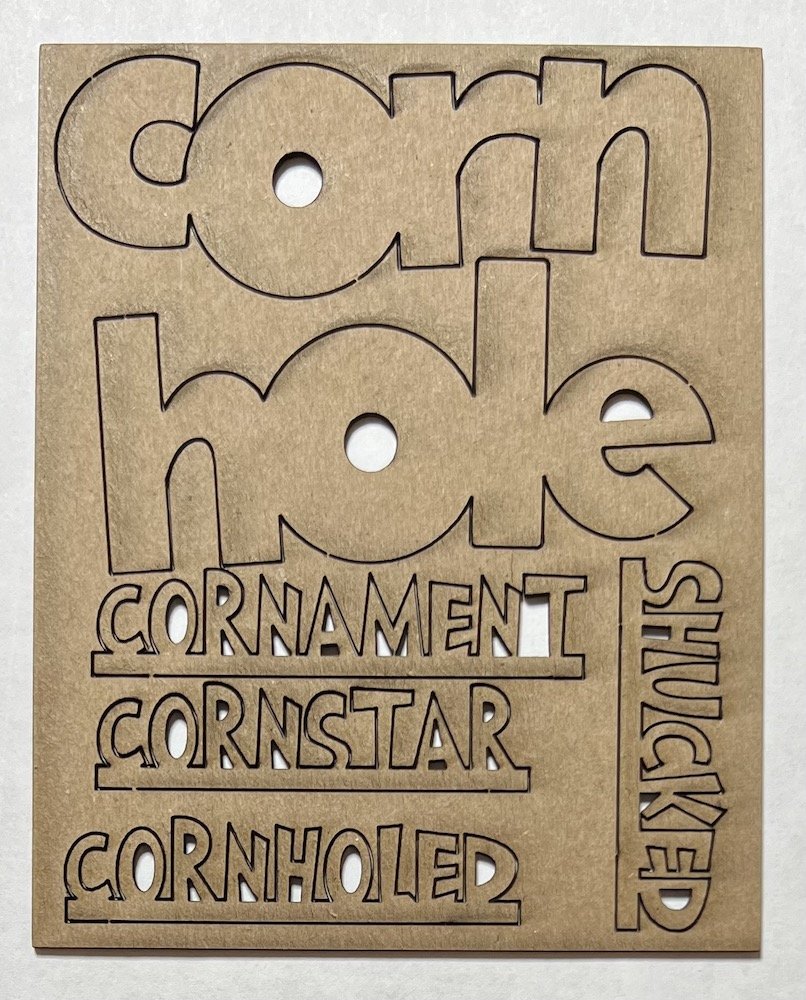 corn
hole
CORNAMENT
CORNSTAR
CORNHOLED
SHUCKED